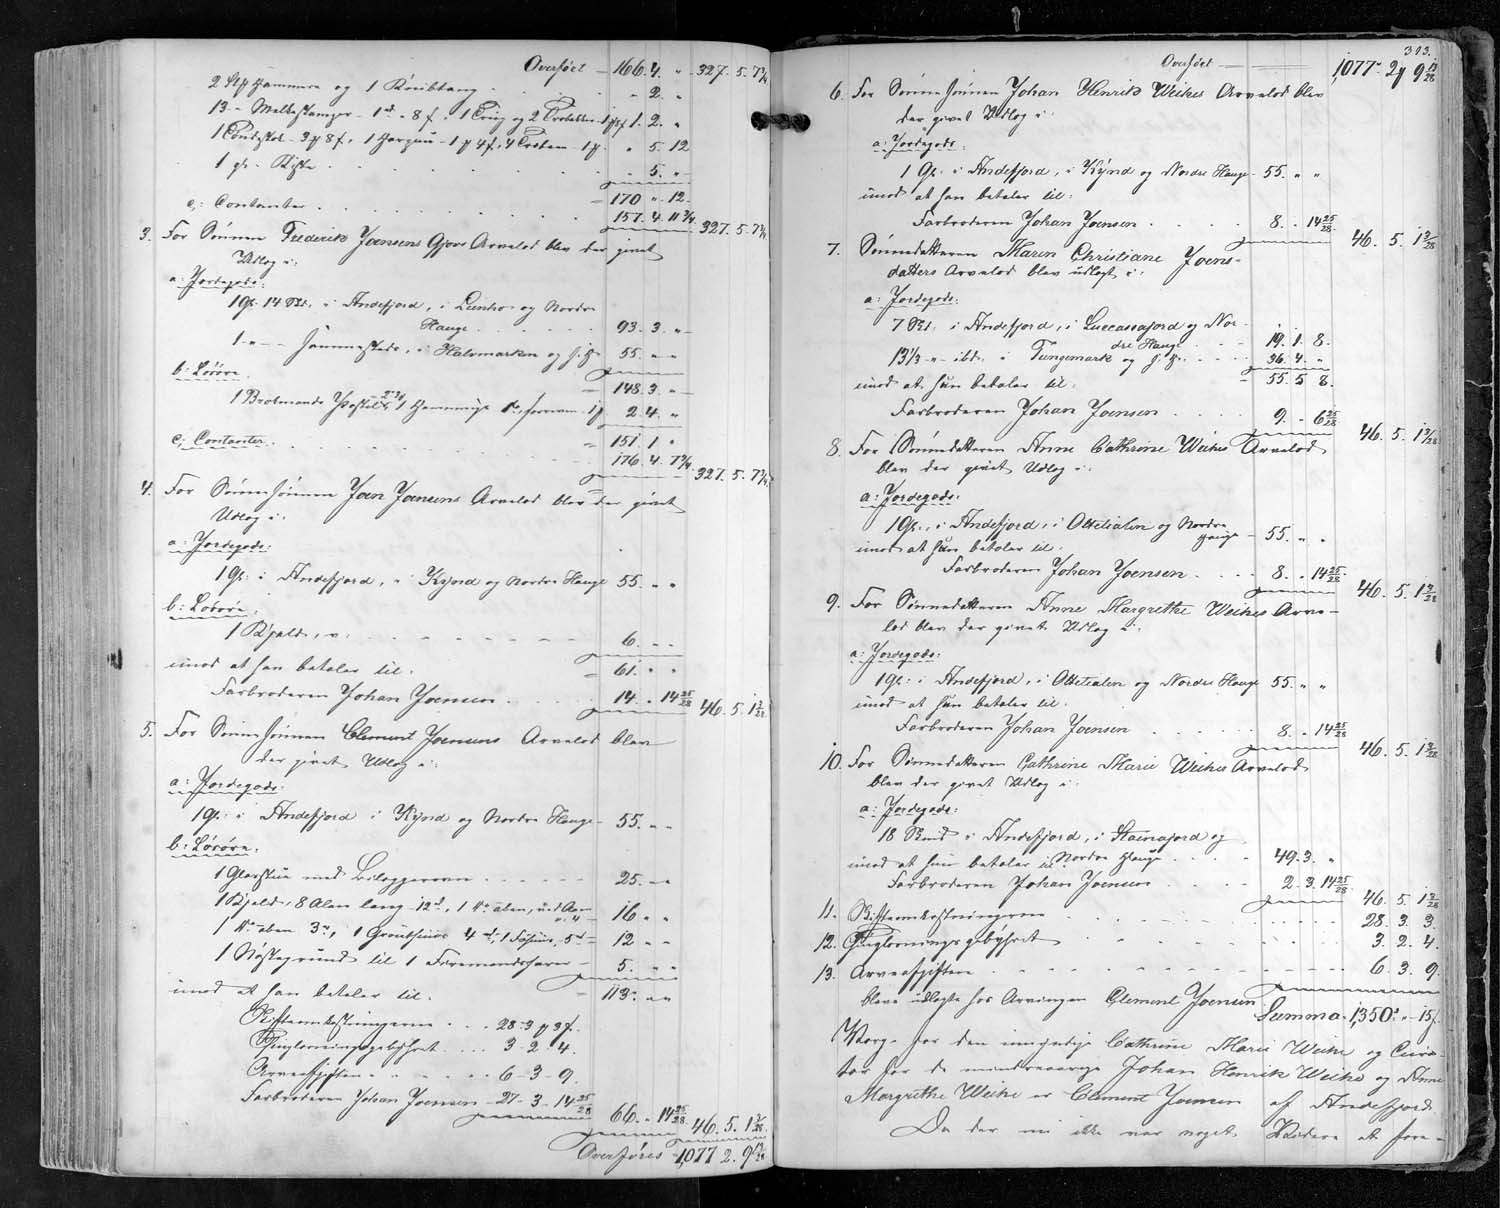 Overført — 166. 4. " 327. 5. 7¾
2 Stk Hammere og 1 Knibtang . . . " 2. "
13 – Malkestamper – 1 d – 8 f. 1 Krug og 2 1. 2. "
3 p 8 f, 1 – 1 p 4 f, 4 – 1 p. " 5. 12
1 gl. Kiste . . . " 5. "
170 " 12.
c; Contanter . . . 157. 4. 11¾ 327. 5. 7¾
3. For Sønnen Frederik Joensens Arvelod blev der givet
Udlog i:
a: Jordegods:
1 Gl. 14 Sk. i Andefjord, i og Nordre
Hauge . . . 93. 3. "
1 – " – i Halvmarken og . . . 55. " "
b: Løsøre. 148. 3. "
1 2. 4. "
151. 1. "
c; Contanter . . . 176. 4. 7¾ 327. 5. 7¾
4. For Sønnesønnen Joen Joensens Arvelod blev der givet
Udlog i:
a: Jordegods:
1 Gl. i Andefjord, i Kyord og Nordre Hauge 55. " "
b: Løsøre.
1 Kjeld, . . . 6. " "
imod at han betaler til. 61. " "
Farbroderen Johan Joensen . . . 14. " 14 25/28 46. 5. 1 3/28
5. For Sønnesønnen Clement Joensens Arvelod blev
der givet Udlog i:
a: Jordegods:
1 Gl. i Andefjord i Kyord og Nordre Hauge – 55. " "
b: Løsøre.
1 Glasstue med Bilæggerovn . . . 25. " "
1 Kjeld, 8 Alen lang – 12 d, 1 16 " "
1 3 d, 1 4 d, 1 5 d – 12 " "
1 Nøstegrund til 1 Firemandsfarer – 5. " "
imod at han betaler til. 113. " "
Skifteomkostningerne . . . 28 – 3 p 3 f.
Thinglæsningsgebyhret . . . 3 – 2 – 4.
Arveafgiften . . . 6 – 3 – 9.
Farbroderen Johan Joensen – 27 – 3 – 14 25/28
66. " 14 25/28 46. 5. 1 3/28
Overføres 1077 2. 9 13/28
313.
Overført 1077. 2 p 9 13/28
6. For Sønnesønnen Johan Henrik Weihes Arvelod blev
der givet Udlog i:
a: Jordegods:
1 Gl. i Andefjord, i Kyord og Nordre Hauge – 55. " "
imod at han betaler til:
Farbroderen Johan Joensen . . . 8. " 14 25/28
46. 5. 1 3/28
7. Sønnedatteren Maren Christiane Joens-
datters Arvelod blev udlagt i:
a: Jordegods:
7 Sk. i Andefjord, i Luccassajord og Nor-
dre Hauge . . . 19. 1. 8.
13⅓ – " – ibd. i Tungemark og . . . 36. 4. "
imod at hun betaler til. 55. 5. 8.
Farbroderen Johan Joensen . . . 9. " 6 25/28
46. 5. 1 3/28
8. For Sønnedatteren Anne Cathrine Weihes Arvelod
blev der givet Udlog i:
a: Jordegods:
1 Gl., i Andefjord, i Ottetialen og Nordre
Hauge – 55. " "
imod at hun betaler til.
Farbroderen Johan Joensen . . . 8. " 14 25/28
46. 5. 1 3/28
9. For Sønnedatteren Anne Margrethe Weihes Arve-
lod blev der givet Udlog i:
a: Jordegods:
1 Gl. i Andefjord, i Ottetialen og Nordre Hauge 55. " "
imod at hun betaler til.
Farbroderen Johan Joensen . . . 8. " 14 25/28
46. 5. 1 3/28
10. For Sønnedatteren Cathrine Marie Weihes Arvelod
blev der givet Udlog i:
a: Jordegods:
18 Skind i Andefjord, i og
Nordre Hauge . . . 49. 3. "
imod at hun betaler til
Farbroderen Johan Joensen . . . 2. 3. 14 25/28
46. 5. 1 3/28
11. Skifteomkostningerne . . . 28. 3. 3.
12. Thinglæsningsgebyhret . . . 3. 2. 4.
13. Arveafgiften . . . 6. 3. 9.
bleve udlagte hos Arvingen Clement Joensen
Summa 1350 " – 15 f.
Værge for den umyndige Cathrine Marie Weihe og Cura-
tor for de mindreaarige Johan Henrik Weihe og Anne
Margrethe Weihe er Clement Joensen af Andefjord.
Da der nu ikke var noget Videre at fore-